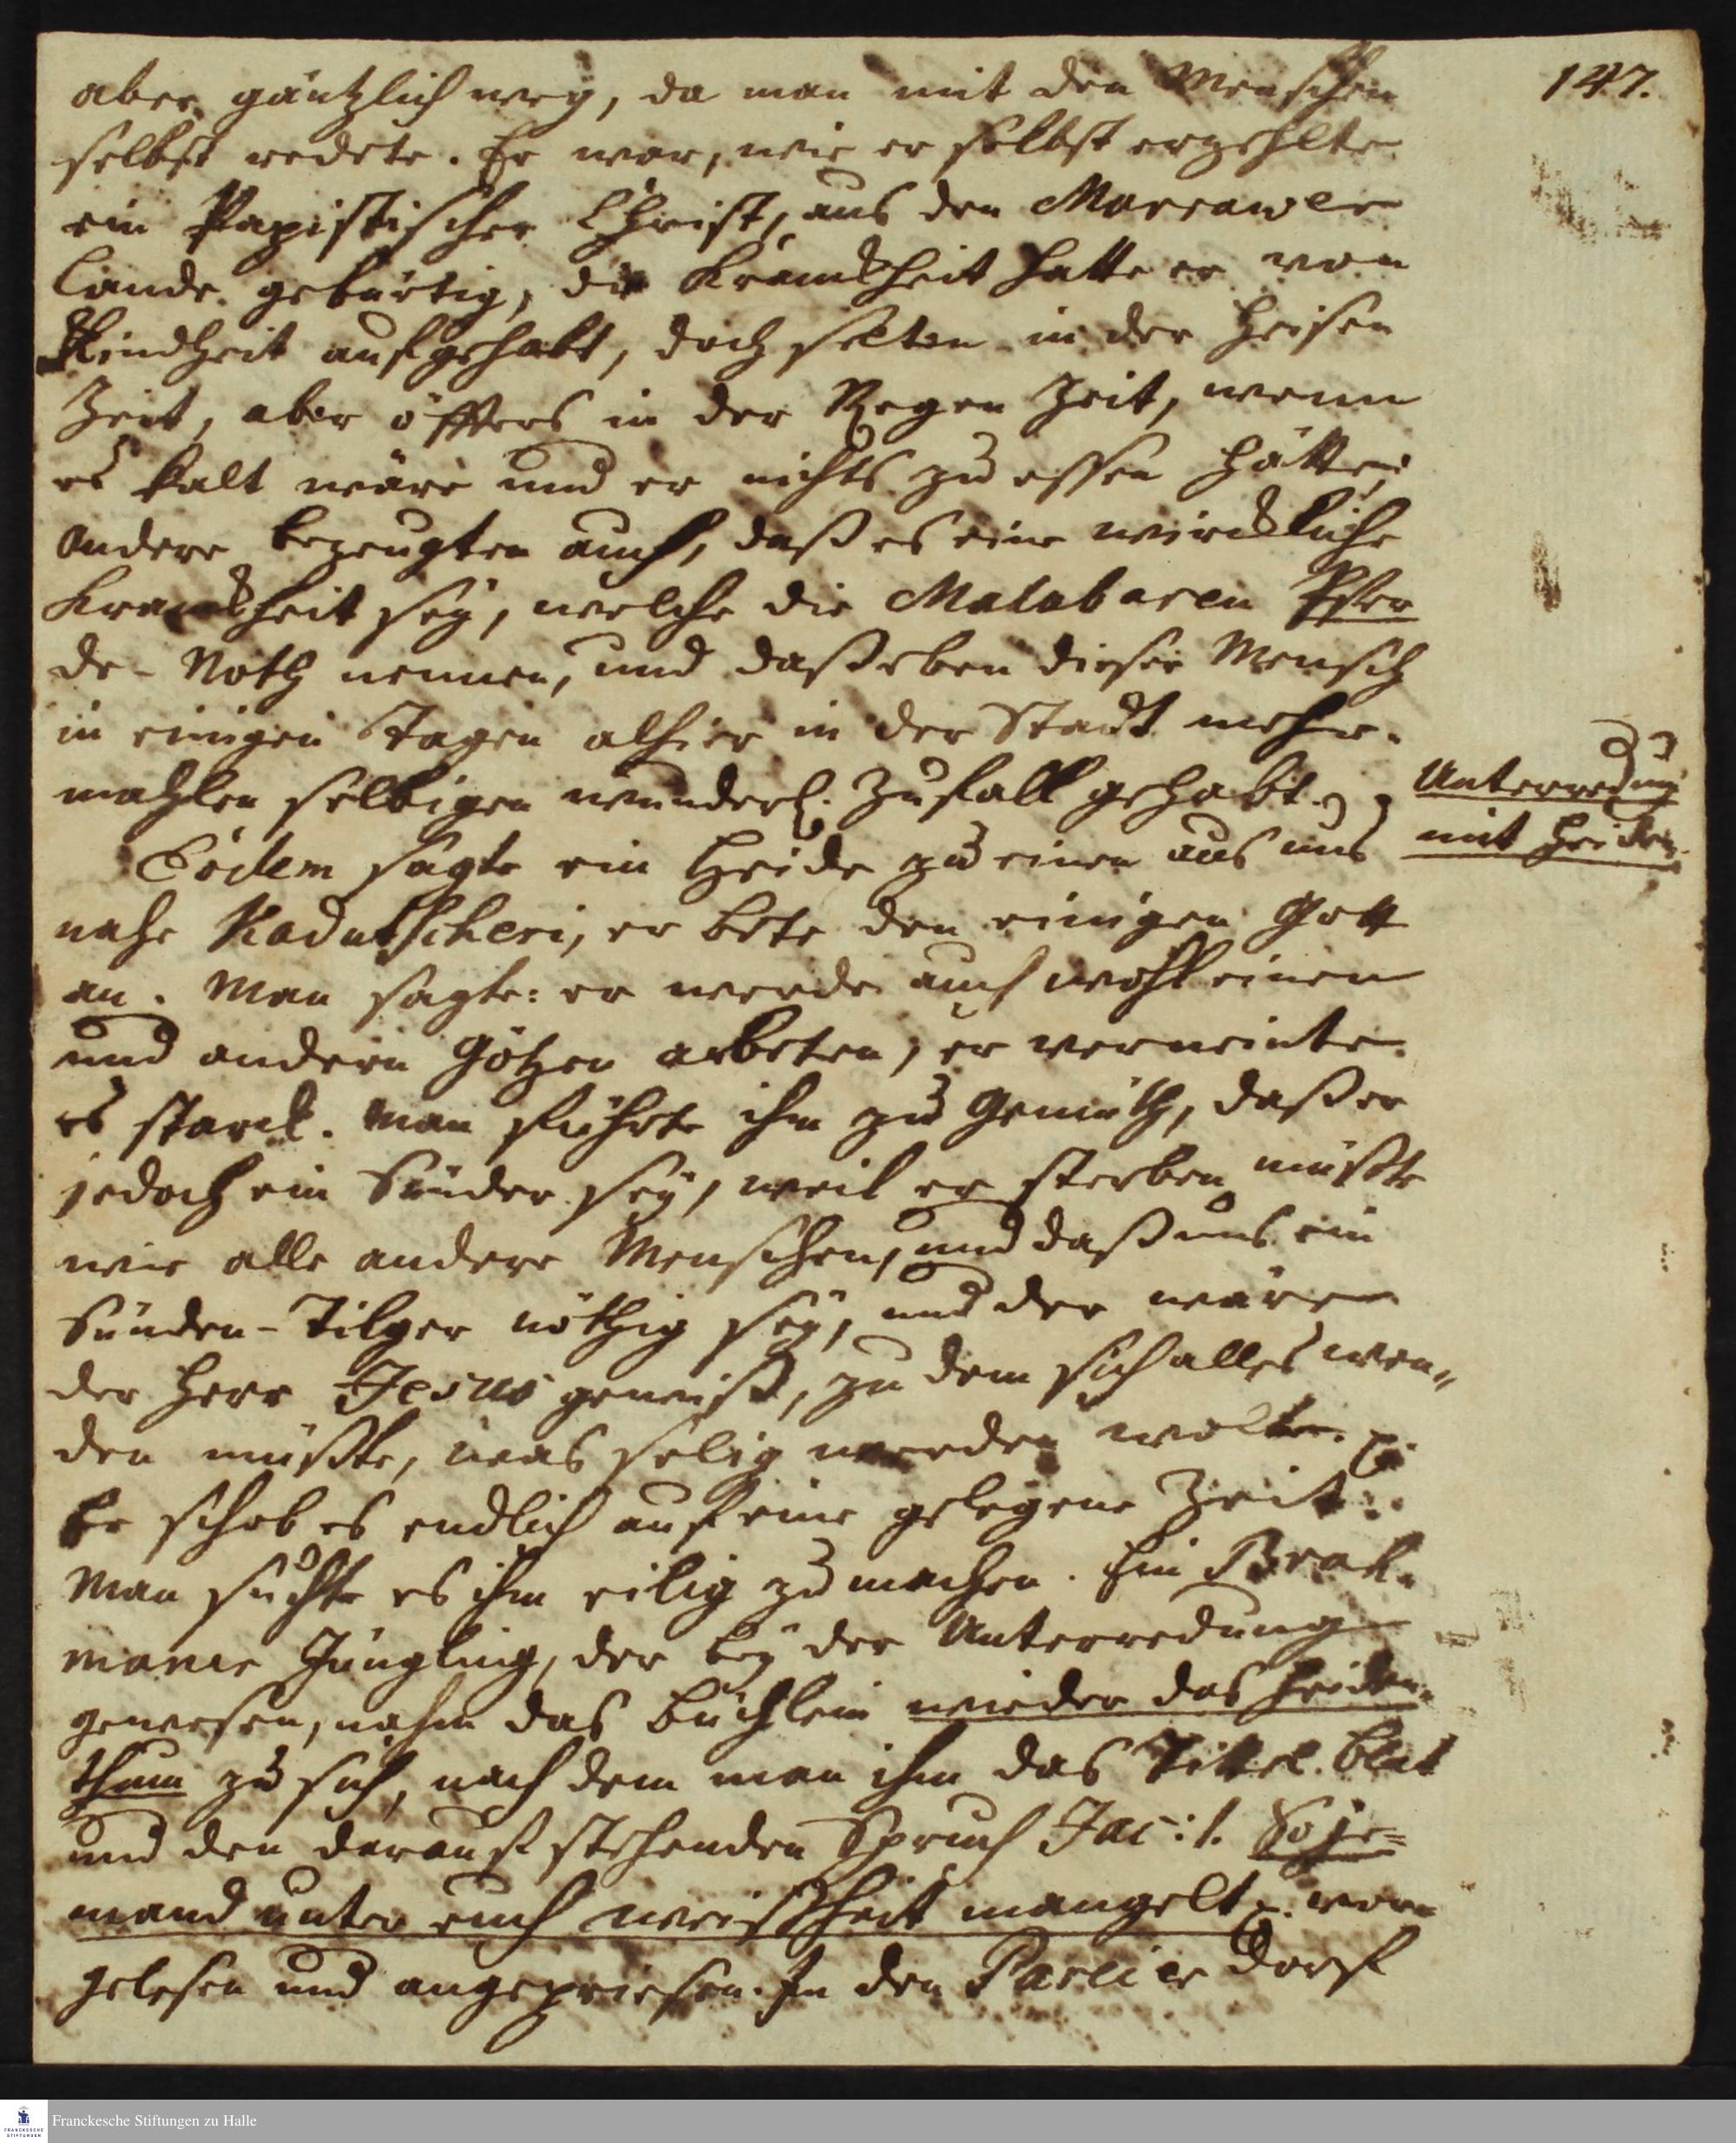 147.
aber gäntzlich weg, da man mit den Menschen
selbst redete. Er war, wie er selbst erzehlte
ein Papistischer Christ, aus den Marrawer
Lande gebürtig, die Kranckheit hatte er von
Kindheit auf gehabt, doch selten in der heisen
Zeit, aber öffters in der Regen Zeit, wenn
es kalt wäre und er nichts zu essen hätte;
andere bezeugten auch, daß es eine wirckliche
Kranckheit sey, welche die Malabaren Pfer
de-Noth nennen, und daß eben dieser Mensch
in einigen Tagen alhier in der Stadt mehr-
mahlen selbigen wunderl. Zufall gehabt.
Unterredung
mit Heiden.
Eodem sagte ein Heide zu einen aus uns
nahe Kadutscheri, er bete den einigen Gott
an. Man sagte: er werde auch wohl einen
und andern Götzen anbeten, er verneinte
es starck. Man führte ihm zu Gemüth, daß er
jedoch ein Sünder sey, weil er sterben müßte
wie alle andere Menschen, und daß uns ein
Sünden-Tilger nöthig sey, und der wäre
der Herr Jesus gewiß, zu dem sich alles wen-
den müßte, was selig werden wolte.
Er schob es endlich auf eine gelegene Zeit.
Man suchte es ihm eilig zu machen. Ein Brah-
maner Jüngling, der bey der Unterredung
gewesen, nahm das Büchlein wieder das Heiden-
thum zu sich, nach dem man ihm das Titel-Blat
und den darauf stehenden Spruch Jac: 1. So je-
mand unter euch weißheit mangelt vor-
gelesen und angepriesen. In den Pareier Dorf
Franckesche Stiftungen zu Halle
FRANCKESCHE
STIFTUNGEN